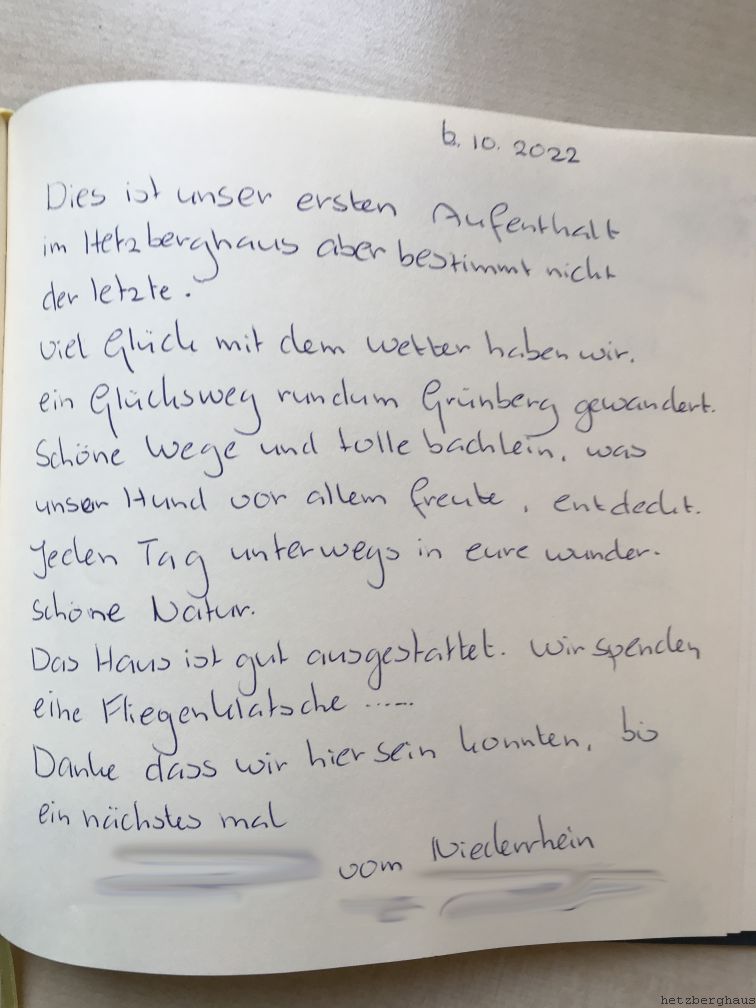 6. 10. 2022
Dies ist unser ersten Aufenthalt
im Hetzberghaus aber bestimmt nicht
der letzte.
viel Glück mit dem wetter haben wir.
ein Glücksweg rundum Grünberg gewandert.
Schöne Wege und tolle bachlein, was
unser Hund vor allem freute, entdeckt.
Jeden Tag unterwegs in eure wunder-
schöne Natur.
Das Haus ist gut ausgestattet. Wir spenden
eine Fliegenklatsche ......
Danke dass wir hier sein konnten, bis
ein nächstes mal
vom Niederrhein
hetzberghaus